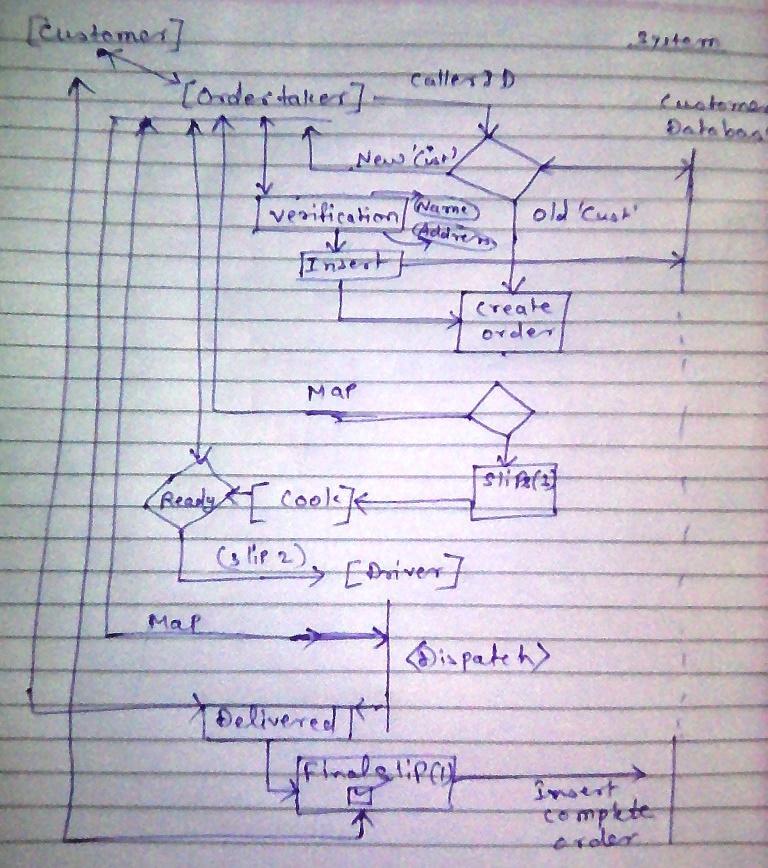 [Customer]
System
Caller ID
[Ordertaker]
Customer
Database
New 'Cust'
Verification
Name
Old 'Cust'
Address
Insert
Create
order
Map
Slips(3)
Ready
[Cook]
(slip 2)
[Driver]
Map
<Dispatch>
Delivered
Final slip(1)
Insert
complete
order